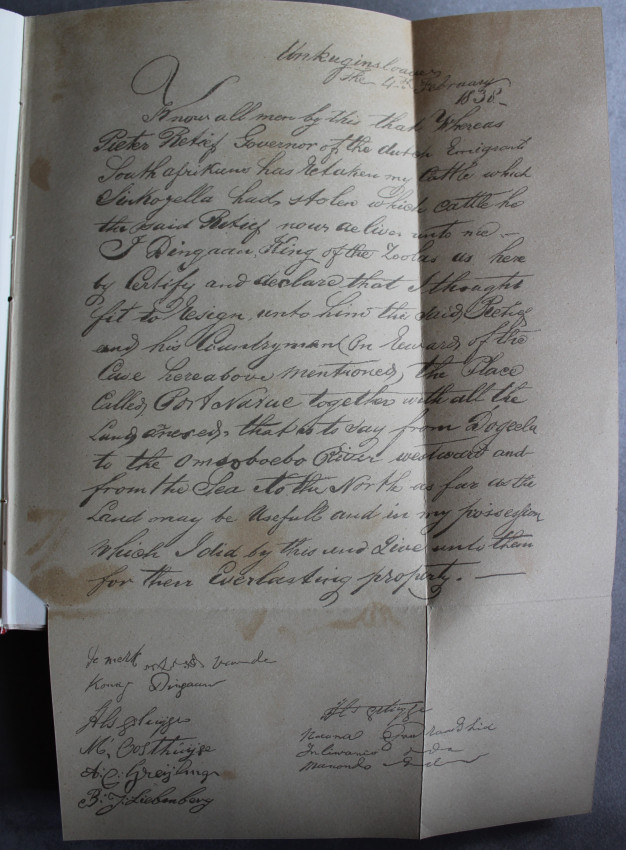 Unkuginsloave
the 4th February
1838 –
Know all men by this that Whereas
Pieter Retief Governor of the dutch Emigrants
South afrikans has Retaken my Cattle which
Sinkoyella had stolen which cattle he
the said Retief now deliver unto me –
I Dingaan, King of the Zoolas as here
by Certify and declare that I thought
fit to Resign unto him the said Retief
and his Countryman (on Reward of the
Case hereabove mentioned, the Place
Called Port Natal together with all the
Land annexed, that is to say from Dogeela
to the Omsoboebo River westward and
from the Sea to the North as far as the
Land may be Usefull and in my possession
Which I did by this and Give unto them
for their Everlasting property. —
De merk van de
Konig Dingaan
Als getuige
M. Oosthuyse
A. C. Greyling
B. J. Liebenberg
Als getuige
Nwana
Juliwanie
Manondo